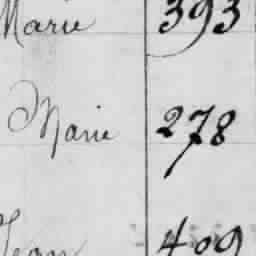 Marie 393
Marie 278
Jean 409